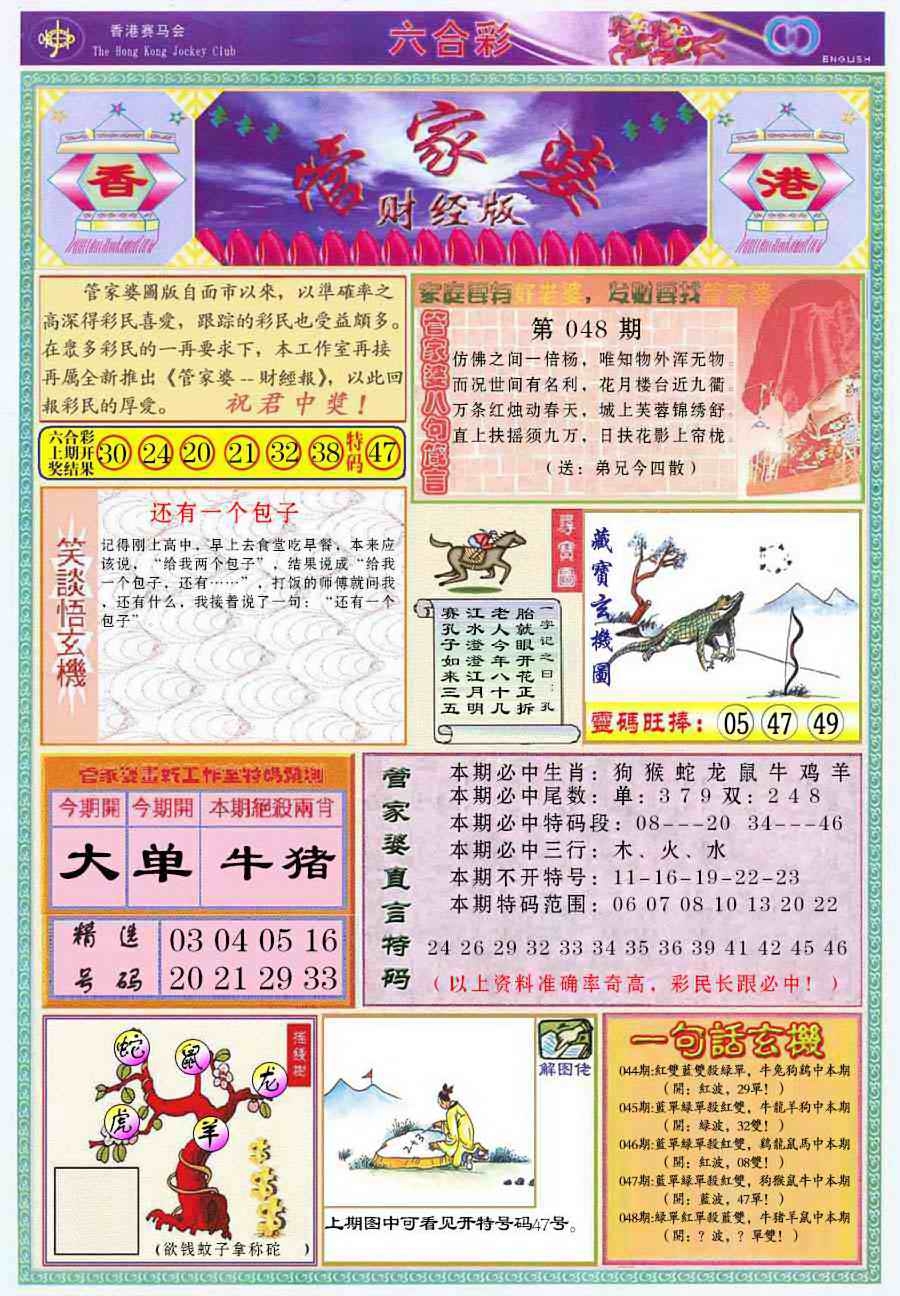 香港赛马会
The Hong Kong Jockey Club
六合彩
ENGLISH
香
管家婆
财经版
港
管家婆圖版自面市以來，以準確率之
高深得彩民喜愛，跟踪的彩民也受益頗多。
在眾多彩民的一再要求下，本工作室再接
再厲全新推出《管家婆--財經報》，以此回
報彩民的厚愛。 祝君中獎！
六合彩
上期开
奖结果
30 24 20 21 32 38 特码 47
家庭要有好老婆，发财要找管家婆
管家婆八句箴言
第 048 期
仿佛之间一倍杨，唯知物外浑无物。
而况世间有名利，花月楼台近九衢。
万条红烛动春天，城上芙蓉锦绣舒。
直上扶摇须九万，日扶花影上帘栊。
（送：弟兄今四散）
笑談悟玄機
还有一个包子
记得刚上高中，早上去食堂吃早餐，本来应
该说，“给我两个包子”，结果说成“给我
一个包子，还有……”，打饭的师傅就问我
，还有什么，我接着说了一句：“还有一个
包子”
尋寶圖
一字记之曰：孔
胎就眼开花正拆
老人今年八十几
江水澄澄江月明
赛孔子如来三五
藏寶玄機圖
靈碼旺捧：05 47 49
管家婆最新工作室特码预测
今期開 今期開 本期絕殺兩肖
大 单 牛猪
精选
号码
03 04 05 16
20 21 29 33
管家婆直言特码
本期必中生肖：狗 猴 蛇 龙 鼠 牛 鸡 羊
本期必中尾数：单：3 7 9 双：2 4 8
本期必中特码段：08---20 34---46
本期必中三行：木、火、水
本期不开特号：11-16-19-22-23
本期特码范围：06 07 08 10 13 20 22
24 26 29 32 33 34 35 36 39 41 42 45 46
（以上资料准确率奇高，彩民长跟必中！）
摇錢樹
蛇
鼠
龙
虎
羊
(欲钱蚊子拿称砣 )
2+3
解图佬
上期图中可看见开特号码47号。
一句話玄機
044期:紅雙藍雙殺綠單，牛兔狗鷄中本期
（開：紅波，29單！）
045期:藍單綠單殺紅雙，牛龍羊狗中本期
（開：綠波，32雙！）
046期:藍單綠單殺紅雙，鷄龍鼠馬中本期
（開：紅波，08雙！）
047期:藍單綠單殺紅雙，狗猴鼠牛中本期
（開：藍波，47單！）
048期:綠單紅單殺藍雙，牛猪羊鼠中本期
（開：？波，？單雙！）